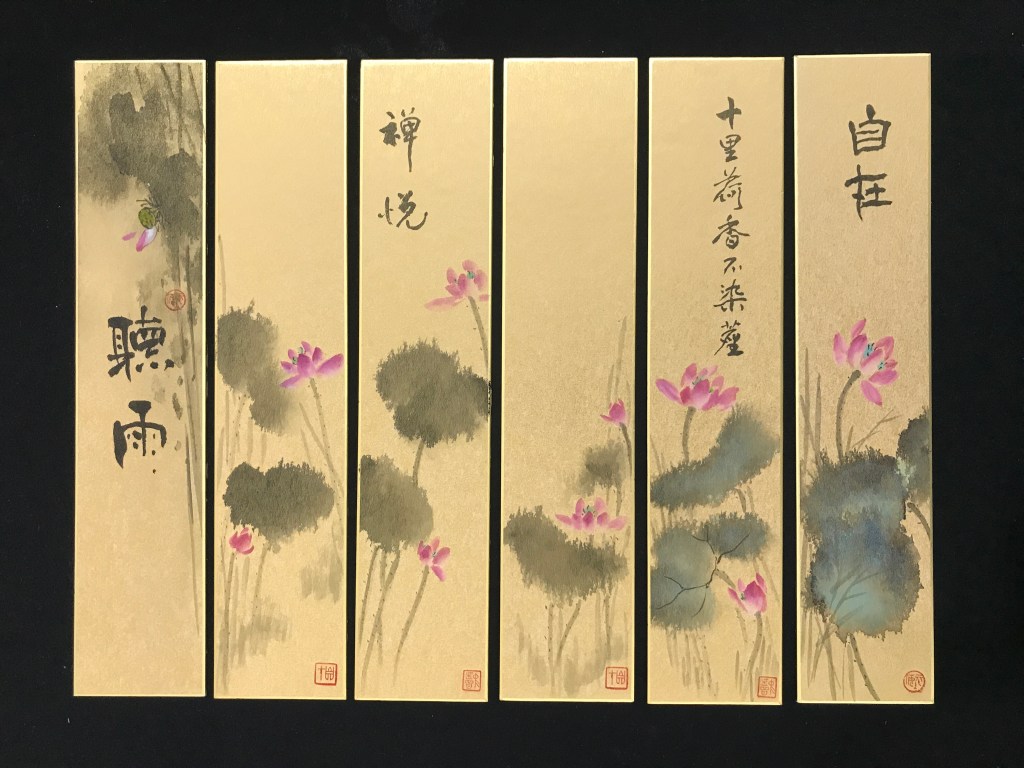 聽雨
禅悦
十里荷香不染塵
自在